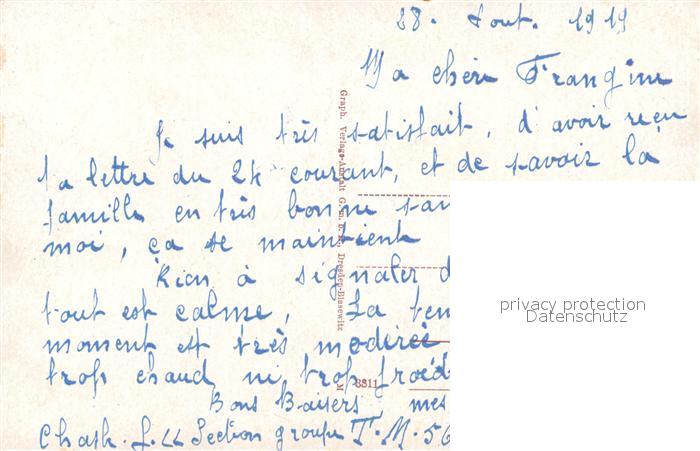 28. Aout. 1919
Ma chère Frangine
Je suis très satisfait, d'avoir reçu
ta lettre du 24 courant, et de savoir la
famille en très bonne san
moi, ça se maintient
Rien à signaler d
tout est calme, La tem
moment est très moderei
trop chaud ni trop froid
Bons Baisers mes
Section groupe T.M. 56
Graph. Verlags-Anstalt G.m.b.H., Dresden-Blasewitz
M 3811
privacy protection
Datenschutz